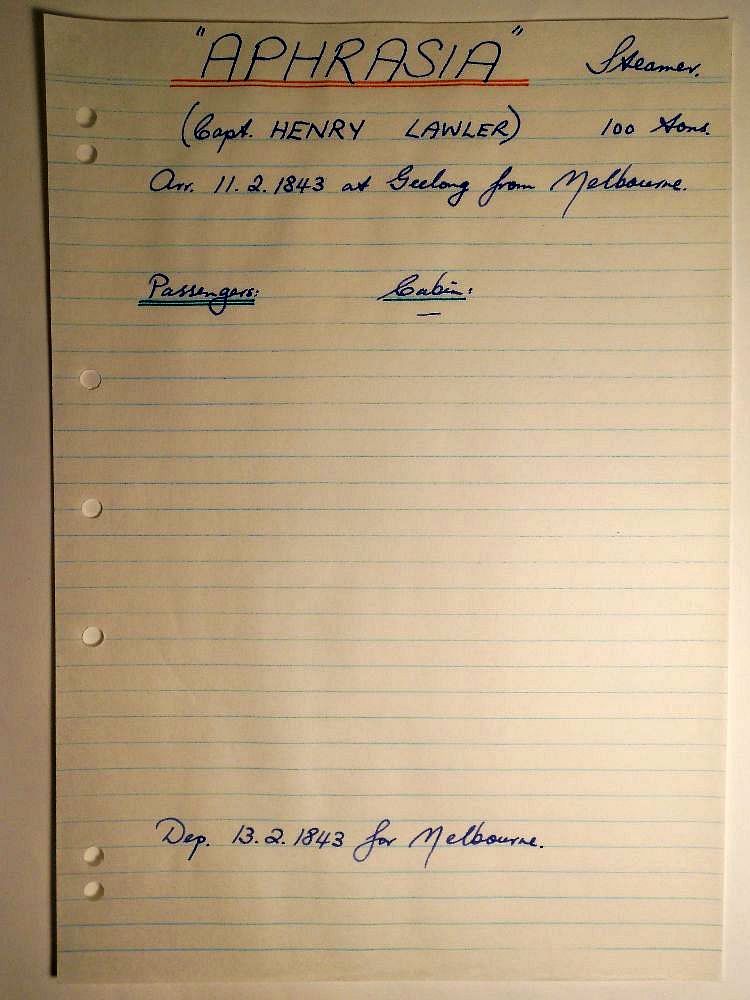 "APHRASIA" Steamer.
(Capt. HENRY LAWLER) 100 tons.
Arr. 11.2.1843 at Geelong from Melbourne.
Passengers: Cabin:
—
Dep. 13.2.1843 for Melbourne.